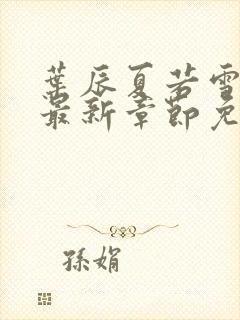 葉辰夏若雪
最新章節免
孫娟